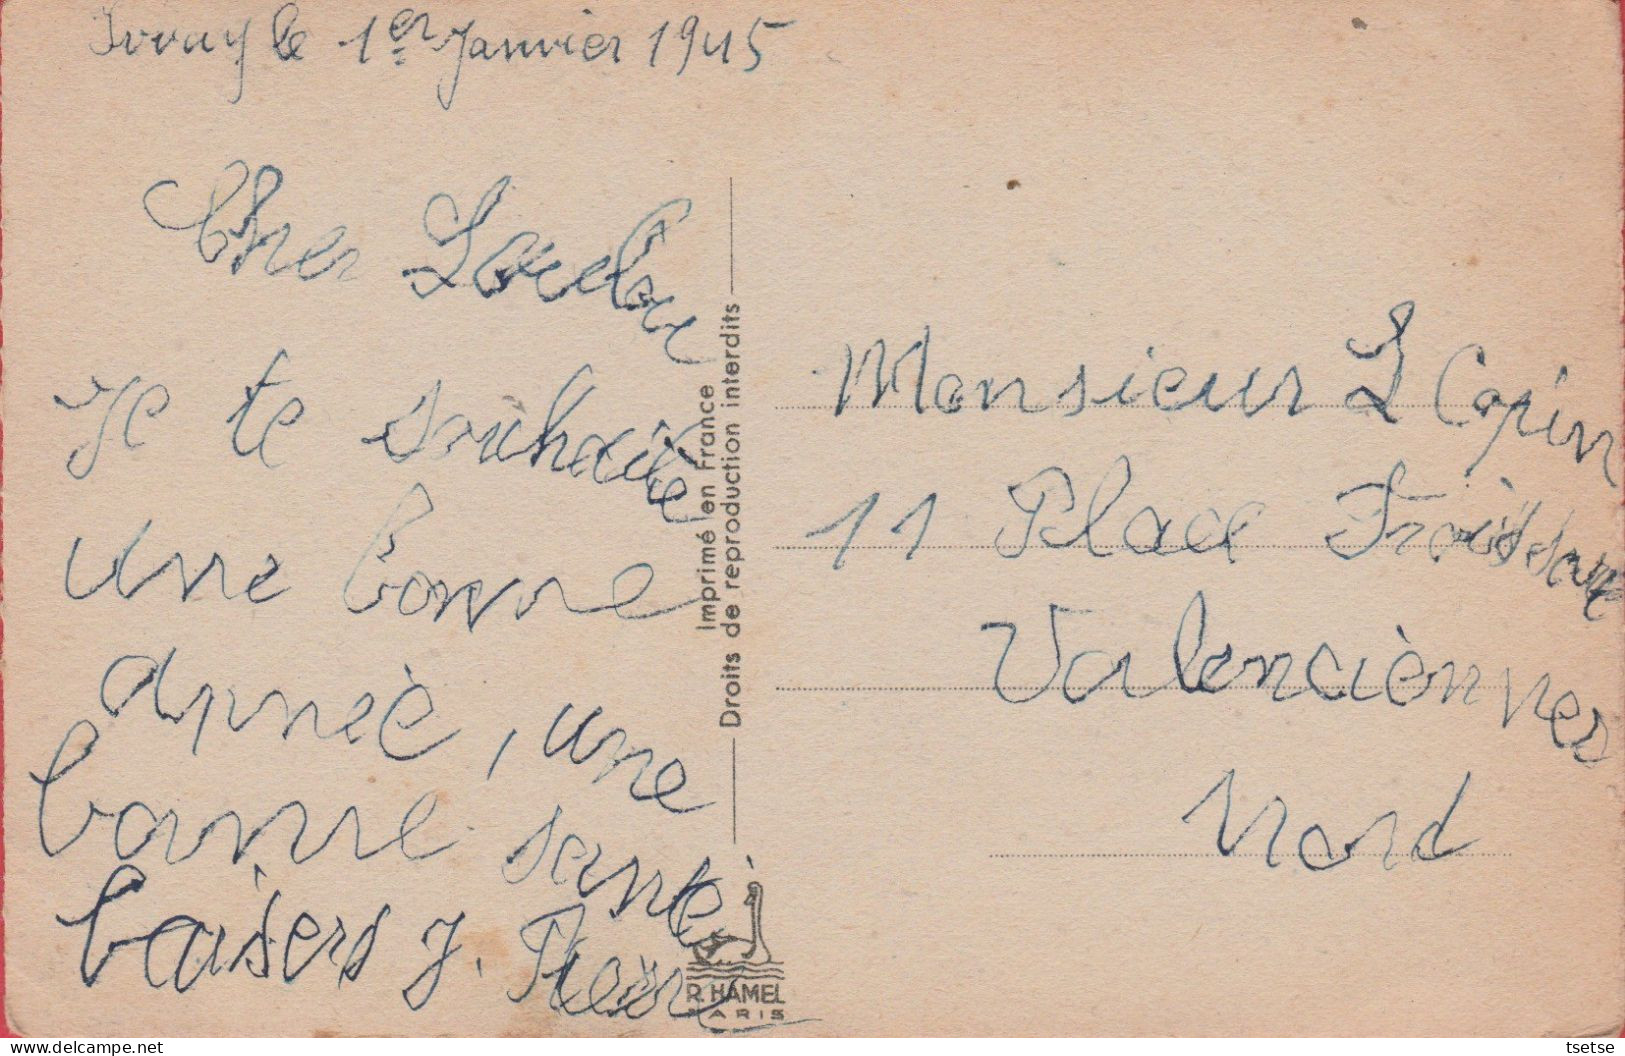 le 1er Janvier 1945
Cher Loulou
Je te souhaite
une bonne
année, une
bonne santé
baisers J. Pierre
Imprimé en France
Droits de reproduction interdits
R. HAMEL
PARIS
Monsieur L Copin
11 Place Froissart
Valenciènnes
Nord
tsetse
delcampe.net